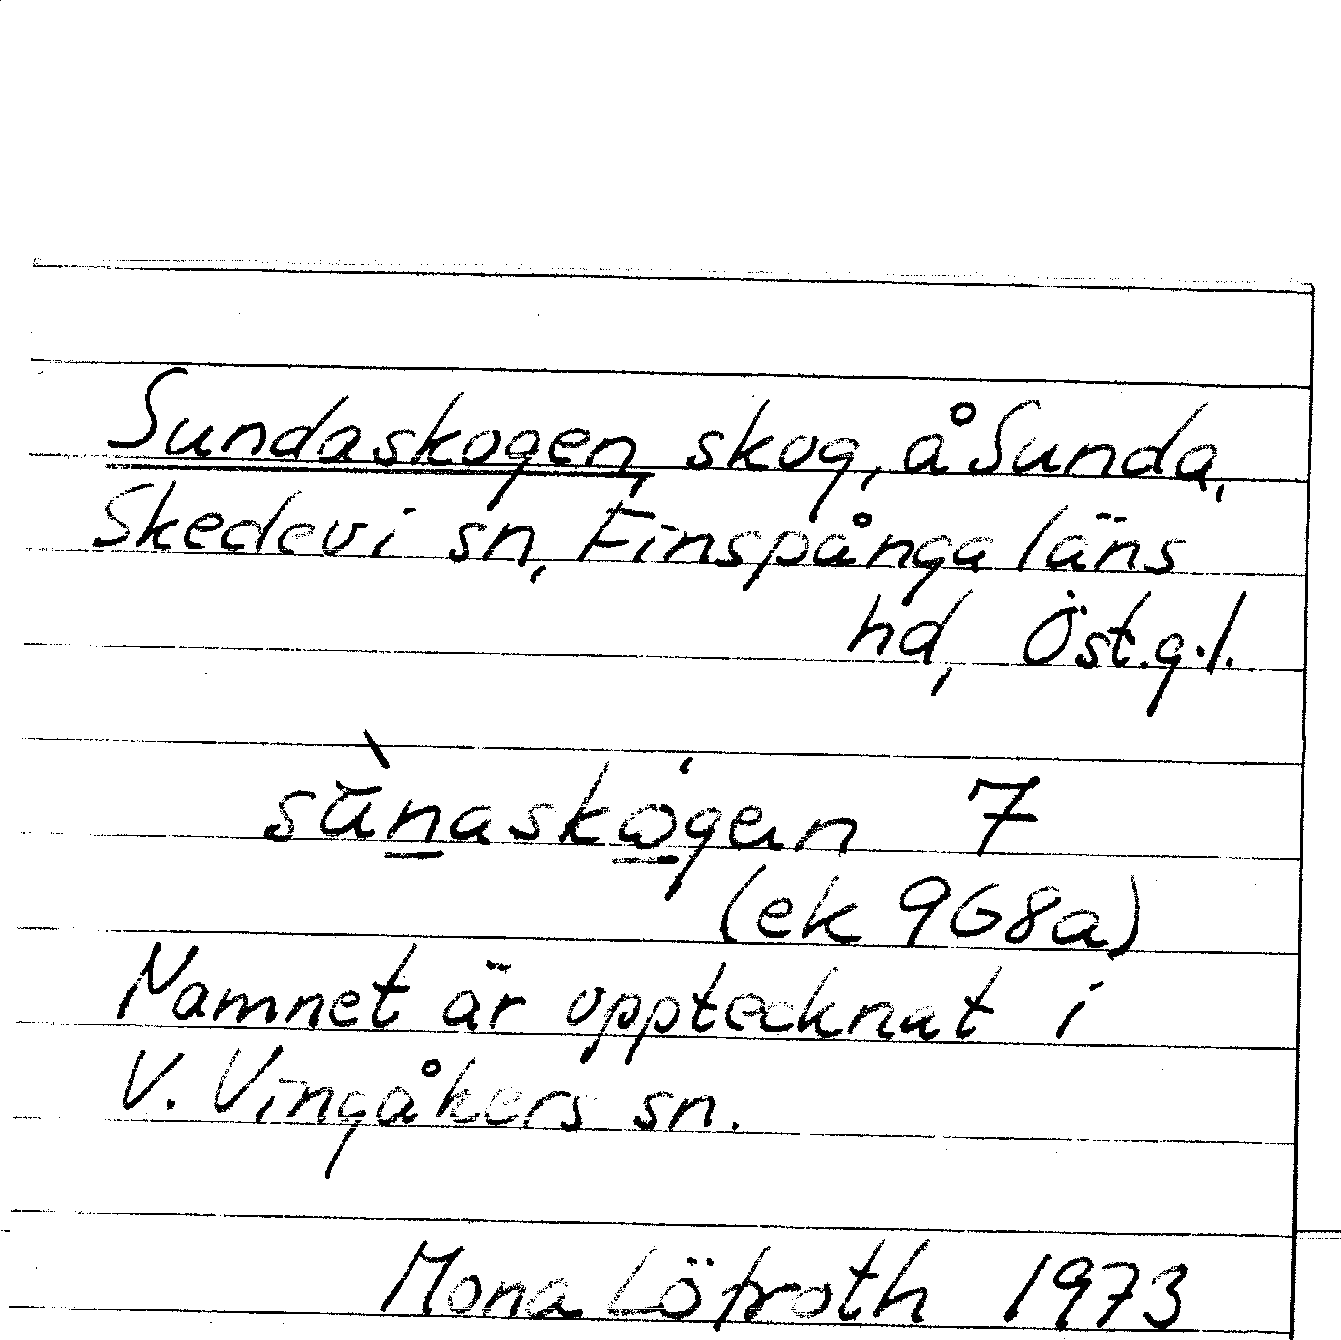 Sundaskogen, skog, å Sunda,
Skedevi sn, Finspånga läns
hd, Öst.g.l.
sǜnaskógen 7
(ek 968a)
Namnet är upptecknat i
V. Vingåkers sn.
Mona Löfroth 1973